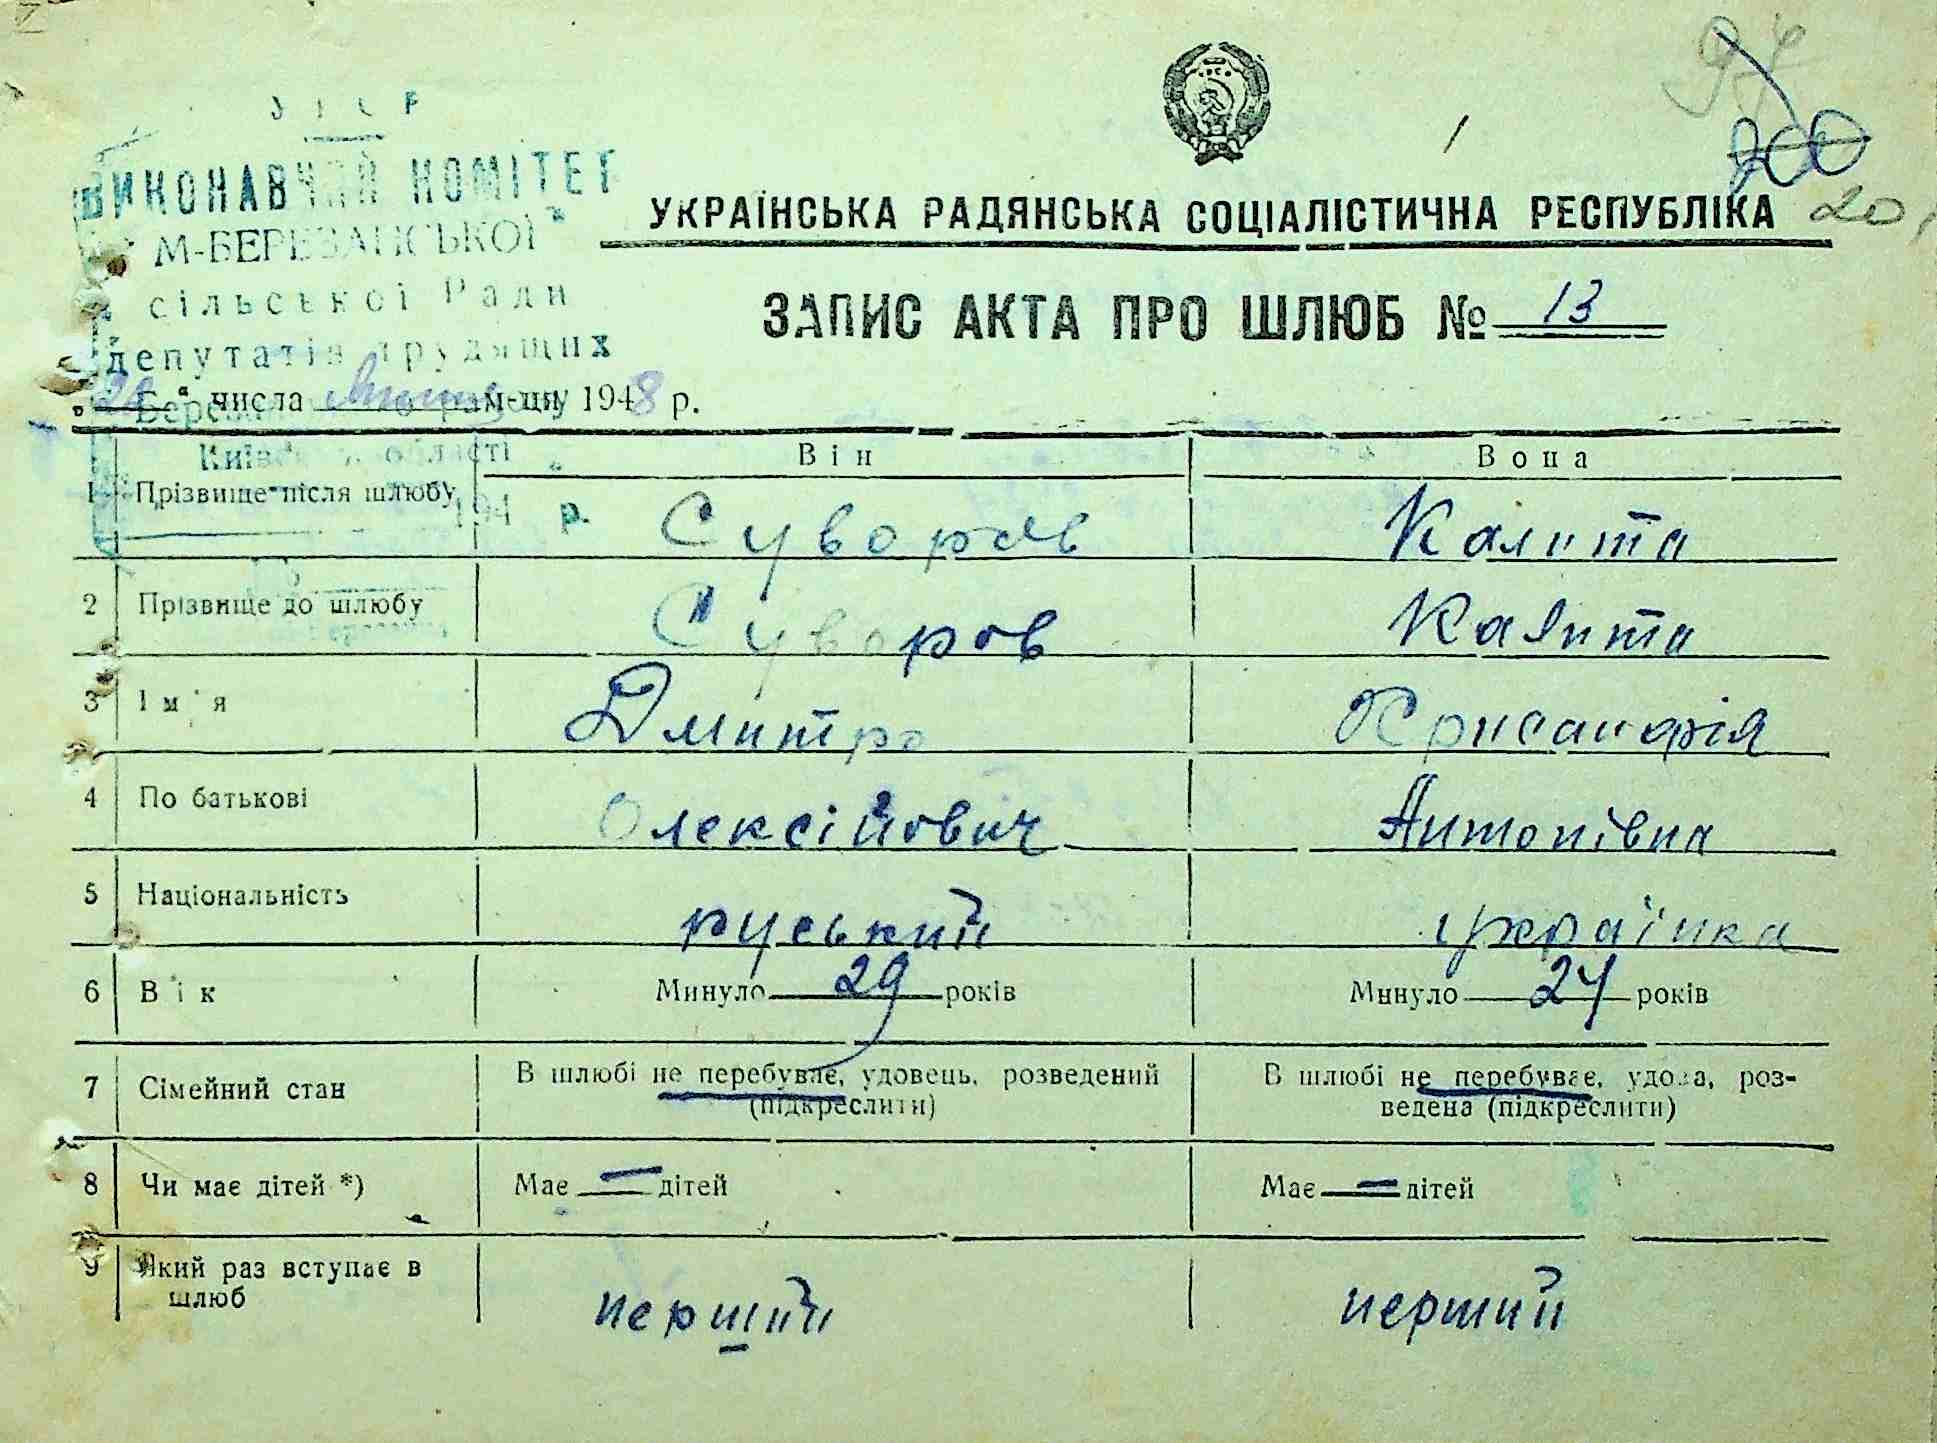 УРСР
ВИКОНАВЧИЙ КОМІТЕТ
М-БЕРЕЗАНСЬКОЇ
сільської Ради
депутатів трудящих
Київської області
194 р.
УКРАЇНСЬКА РАДЯНСЬКА СОЦІАЛІСТИЧНА РЕСПУБЛІКА 20
ЗАПИС АКТА ПРО ШЛЮБ № 13
числа м-ци 1948 р.
Він Вона
1 Прізвище після шлюбу Суворов Калита
2 Прізвище до шлюбу Суворов Калита
3 Ім'я Дмитро Хрисанфія
4 По батькові Олексійович Антонівна
5 Національність руський українка
6 Вік Минуло 29 років Минуло 24 років
7 Сімейний стан В шлюбі не перебуває, удовець, розведений В шлюбі не перебуває, удова, роз-
(підкреслити) ведена (підкреслити)
8 Чи має дітей *) Має — дітей Має — дітей
9 Який раз вступає в
шлюб перший перший